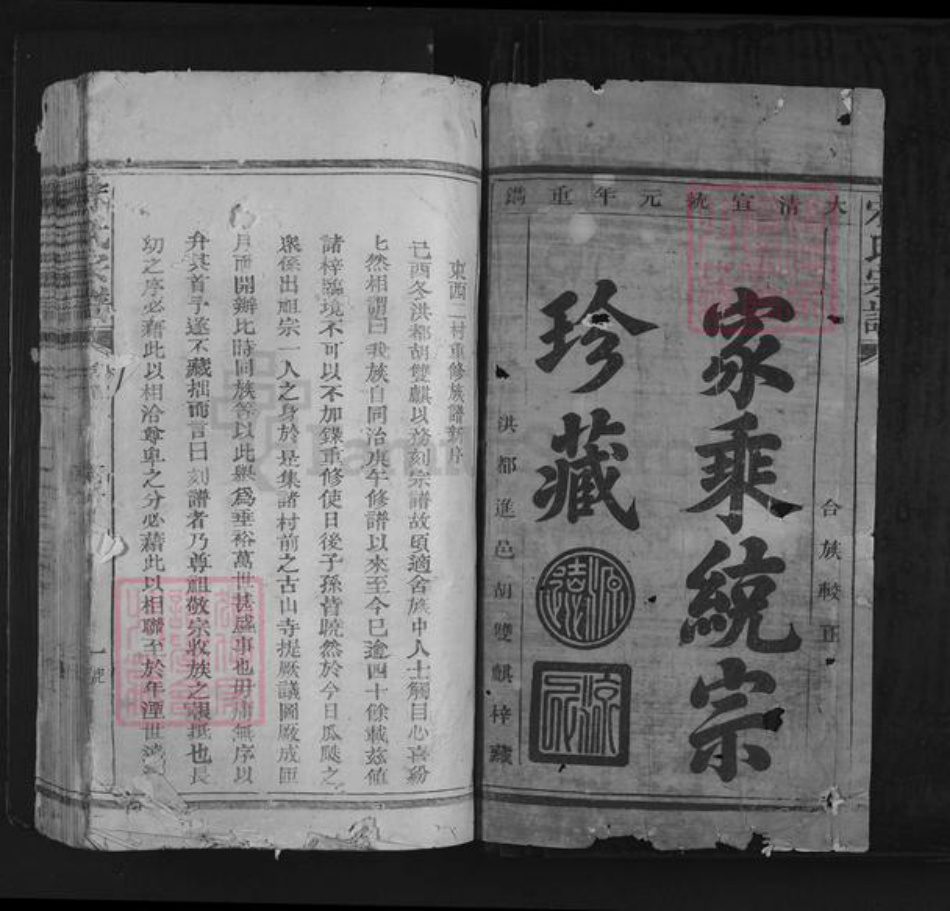 大清宣統元年重鐫
合族較正
家乘統宗
珍藏
洪都進邑胡雙麒梓藏
宋氏宗譜
東西二村重修族譜新序
己酉冬洪都胡雙麒以務刻宗譜故頃適舍族中人士觸目心喜紛
七然相謂曰我族自同治庚午修譜以來至今已逾四十餘載茲值
諸梓臨境不可以不加鏁重修使日後子孫皆曉然於今日瓜瓞之
衆係出祖宗一人之身於是集諸村前之古山寺提厥議圖厥成匝
月而開辦比時同族等以此舉爲垂裕萬世甚盛事也毋庸無序以
弁其首予遂不藏拙而言曰刻譜者乃尊祖敬宗收族之也長
幼之序必藉此以相洽尊卑之分必藉此以相聯至於年湮世
宋氏宗譜
一號